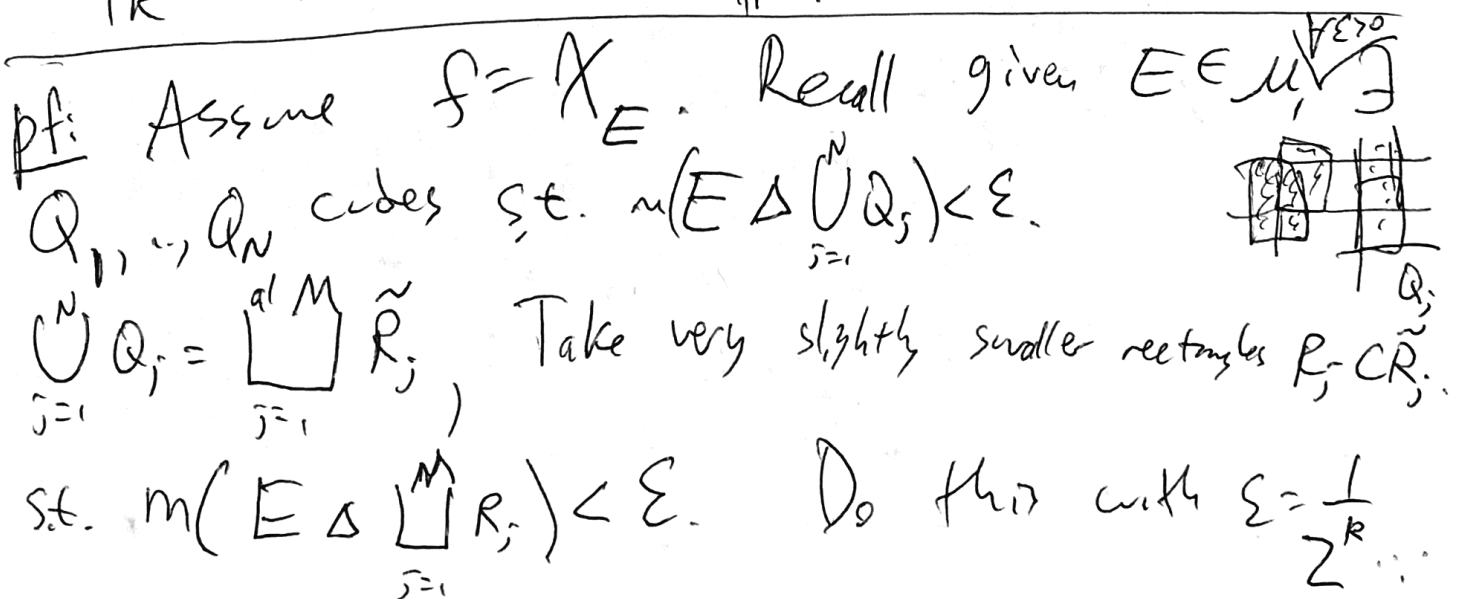 IR
pf: Assume f = χ_E. Recall given E ∈ M, ∀ε>0 ∃
Q_1, .., Q_N cubes s.t. m(E Δ ⋃_{j=1}^N Q_j) < ε.
Q_j
⋃_{j=1}^N Q_j = ⨆_{j=1}^{al M} R̃_j, Take very slightly smaller rectangles R_j ⊂ R̃_j.
s.t. m(E Δ ⨆_{j=1}^M R_j) < ε. Do this with ε = 1/2^k ...